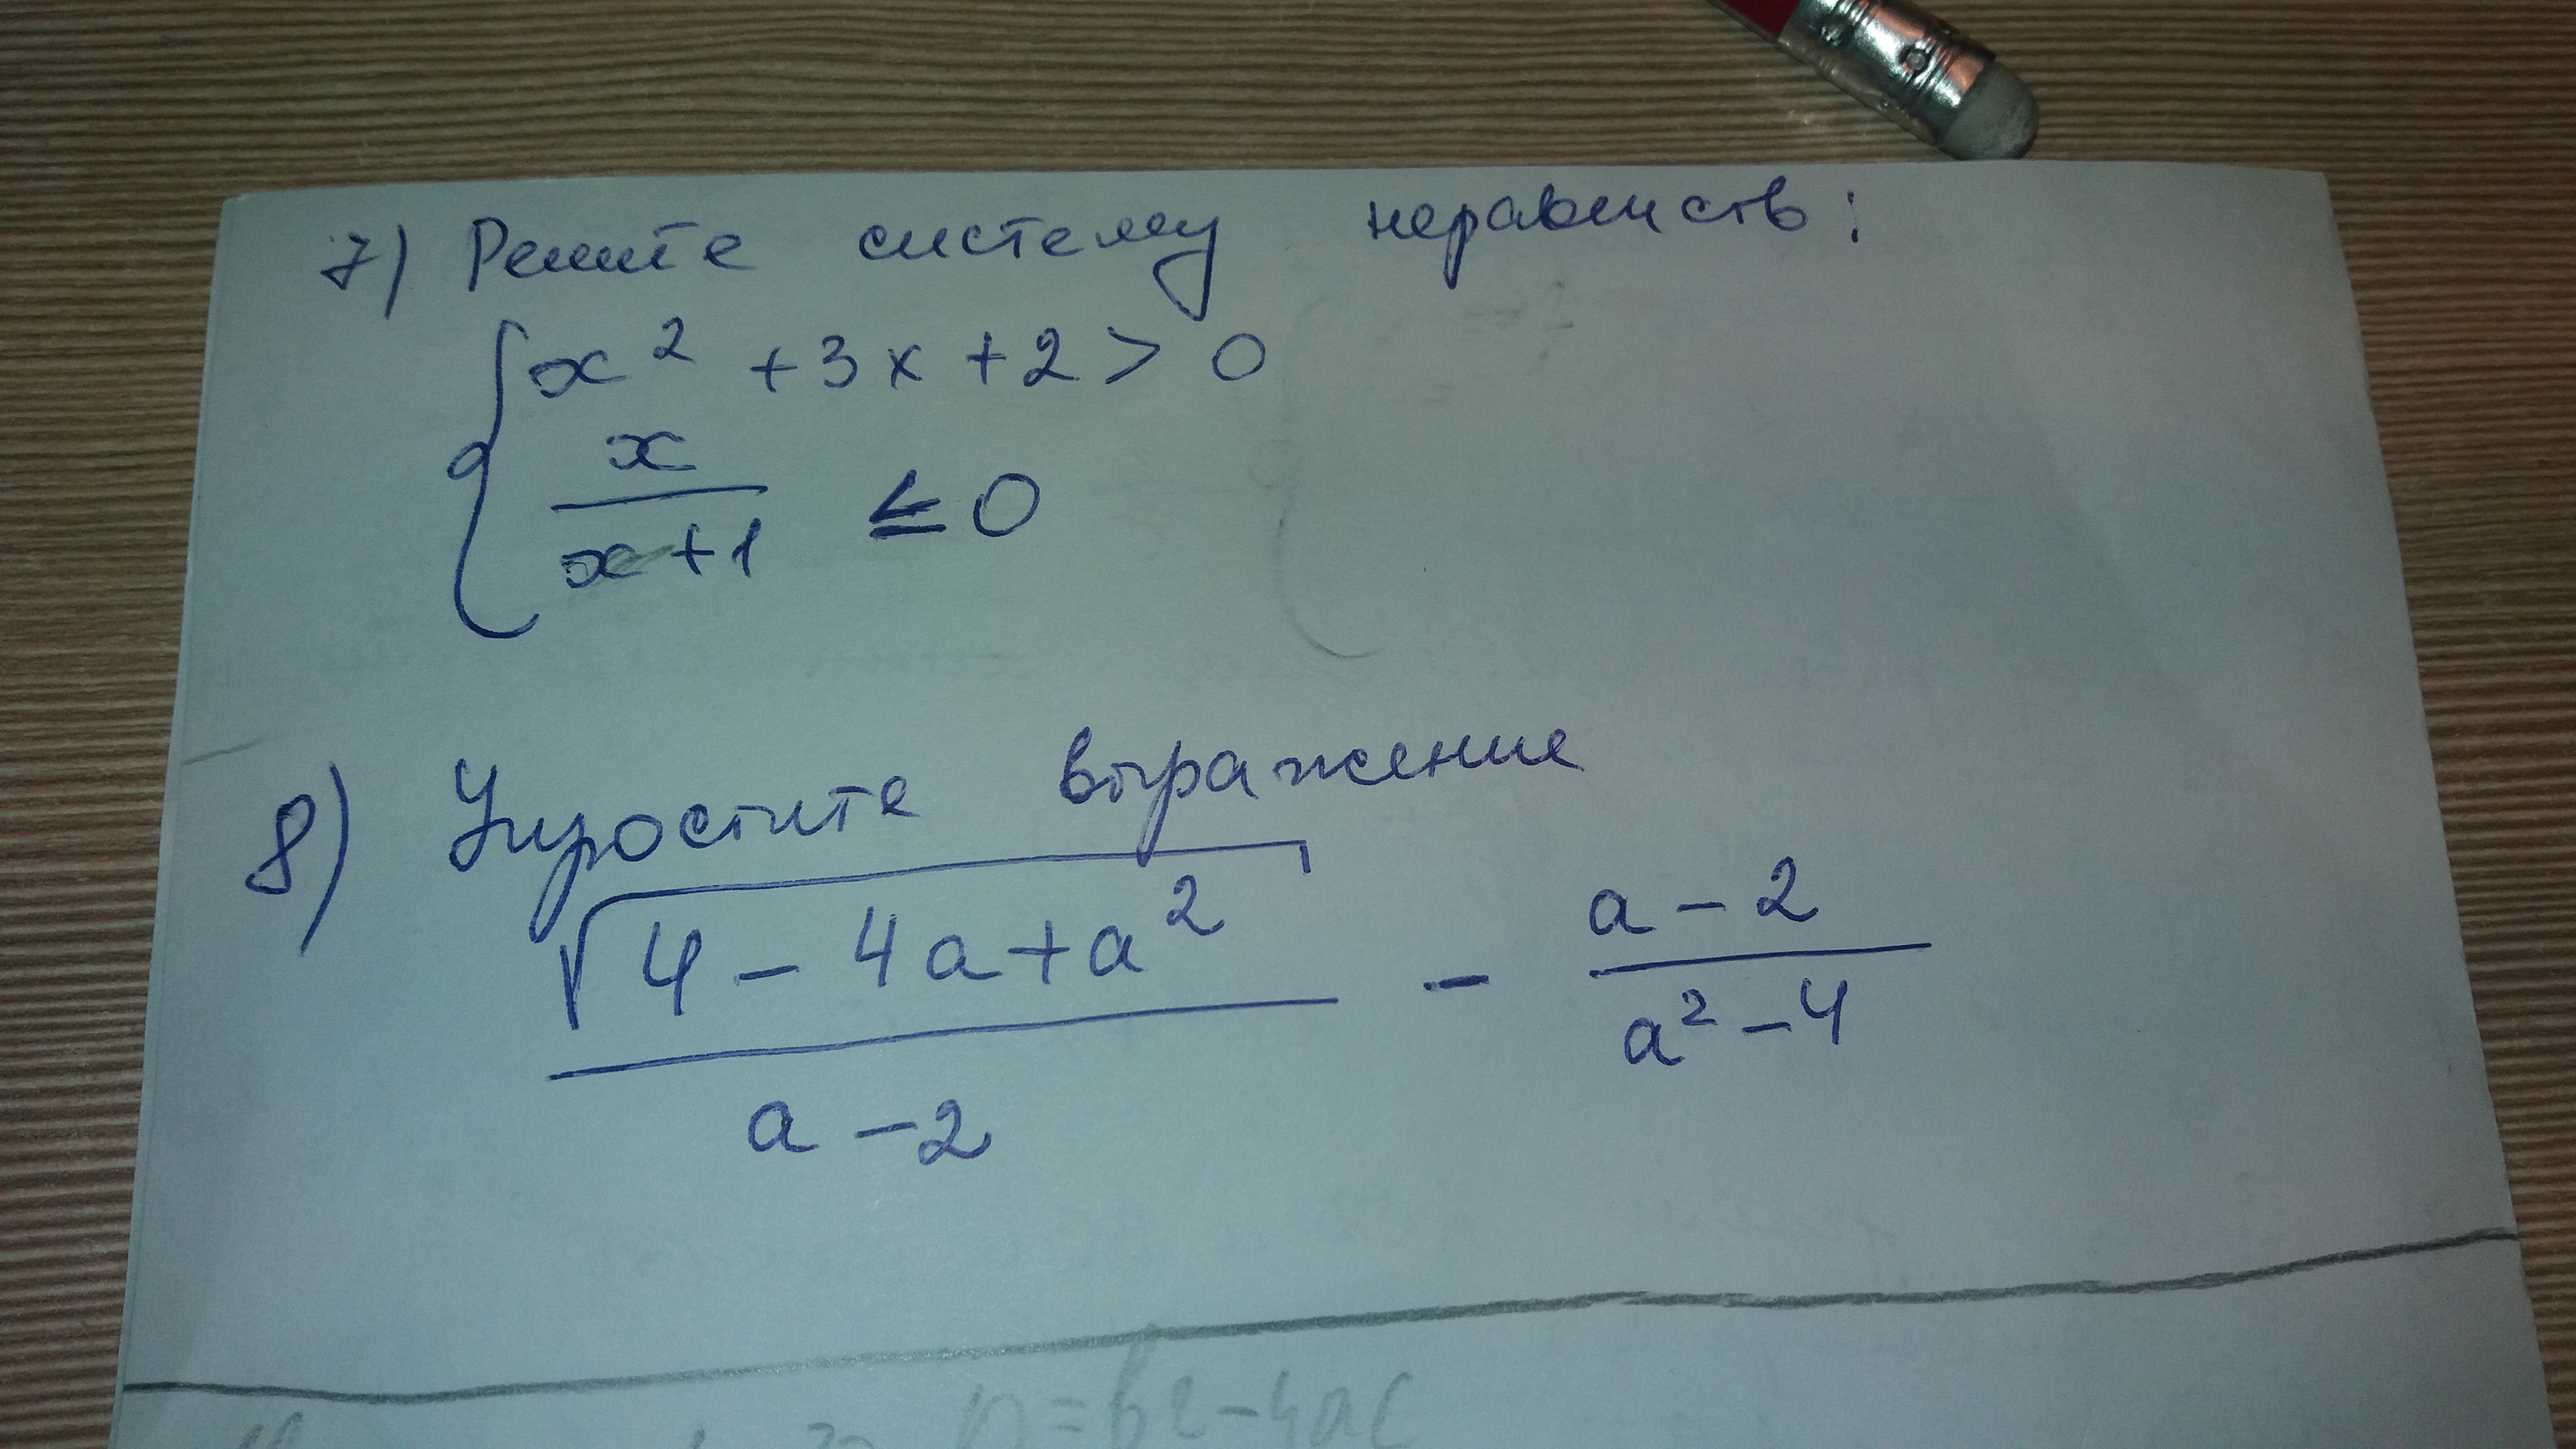 7) Решите систему неравенств:
x² + 3x + 2 > 0
x
x+1 ≤ 0
8) Упростите выражение
√4 - 4a + a² - a - 2
a - 2 a² - 4
D = b2 - 4ac